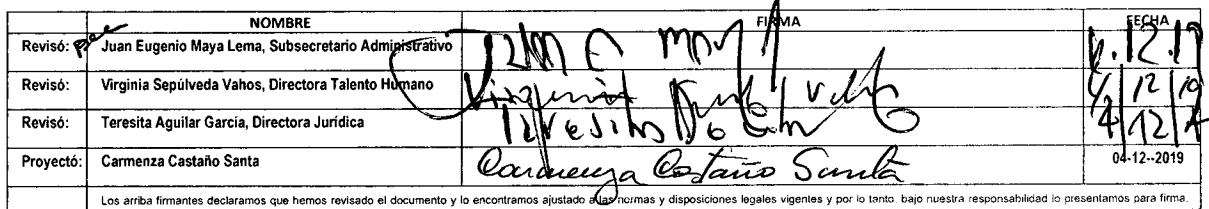 NOMBRE FIRMA FECHA
Revisó: Juan Eugenio Maya Lema, Subsecretario Administrativo
Revisó: Virginia Sepúlveda Vahos, Directora Talento Humano Virginia
Revisó: Teresita Aguilar García, Directora Jurídica
Proyectó: Carmenza Castaño Santa Carmenza Castaño Santa 04-12--2019
Los arriba firmantes declaramos que hemos revisado el documento y lo encontramos ajustado a las normas y disposiciones legales vigentes y por lo tanto, bajo nuestra responsabilidad lo presentamos para firma.